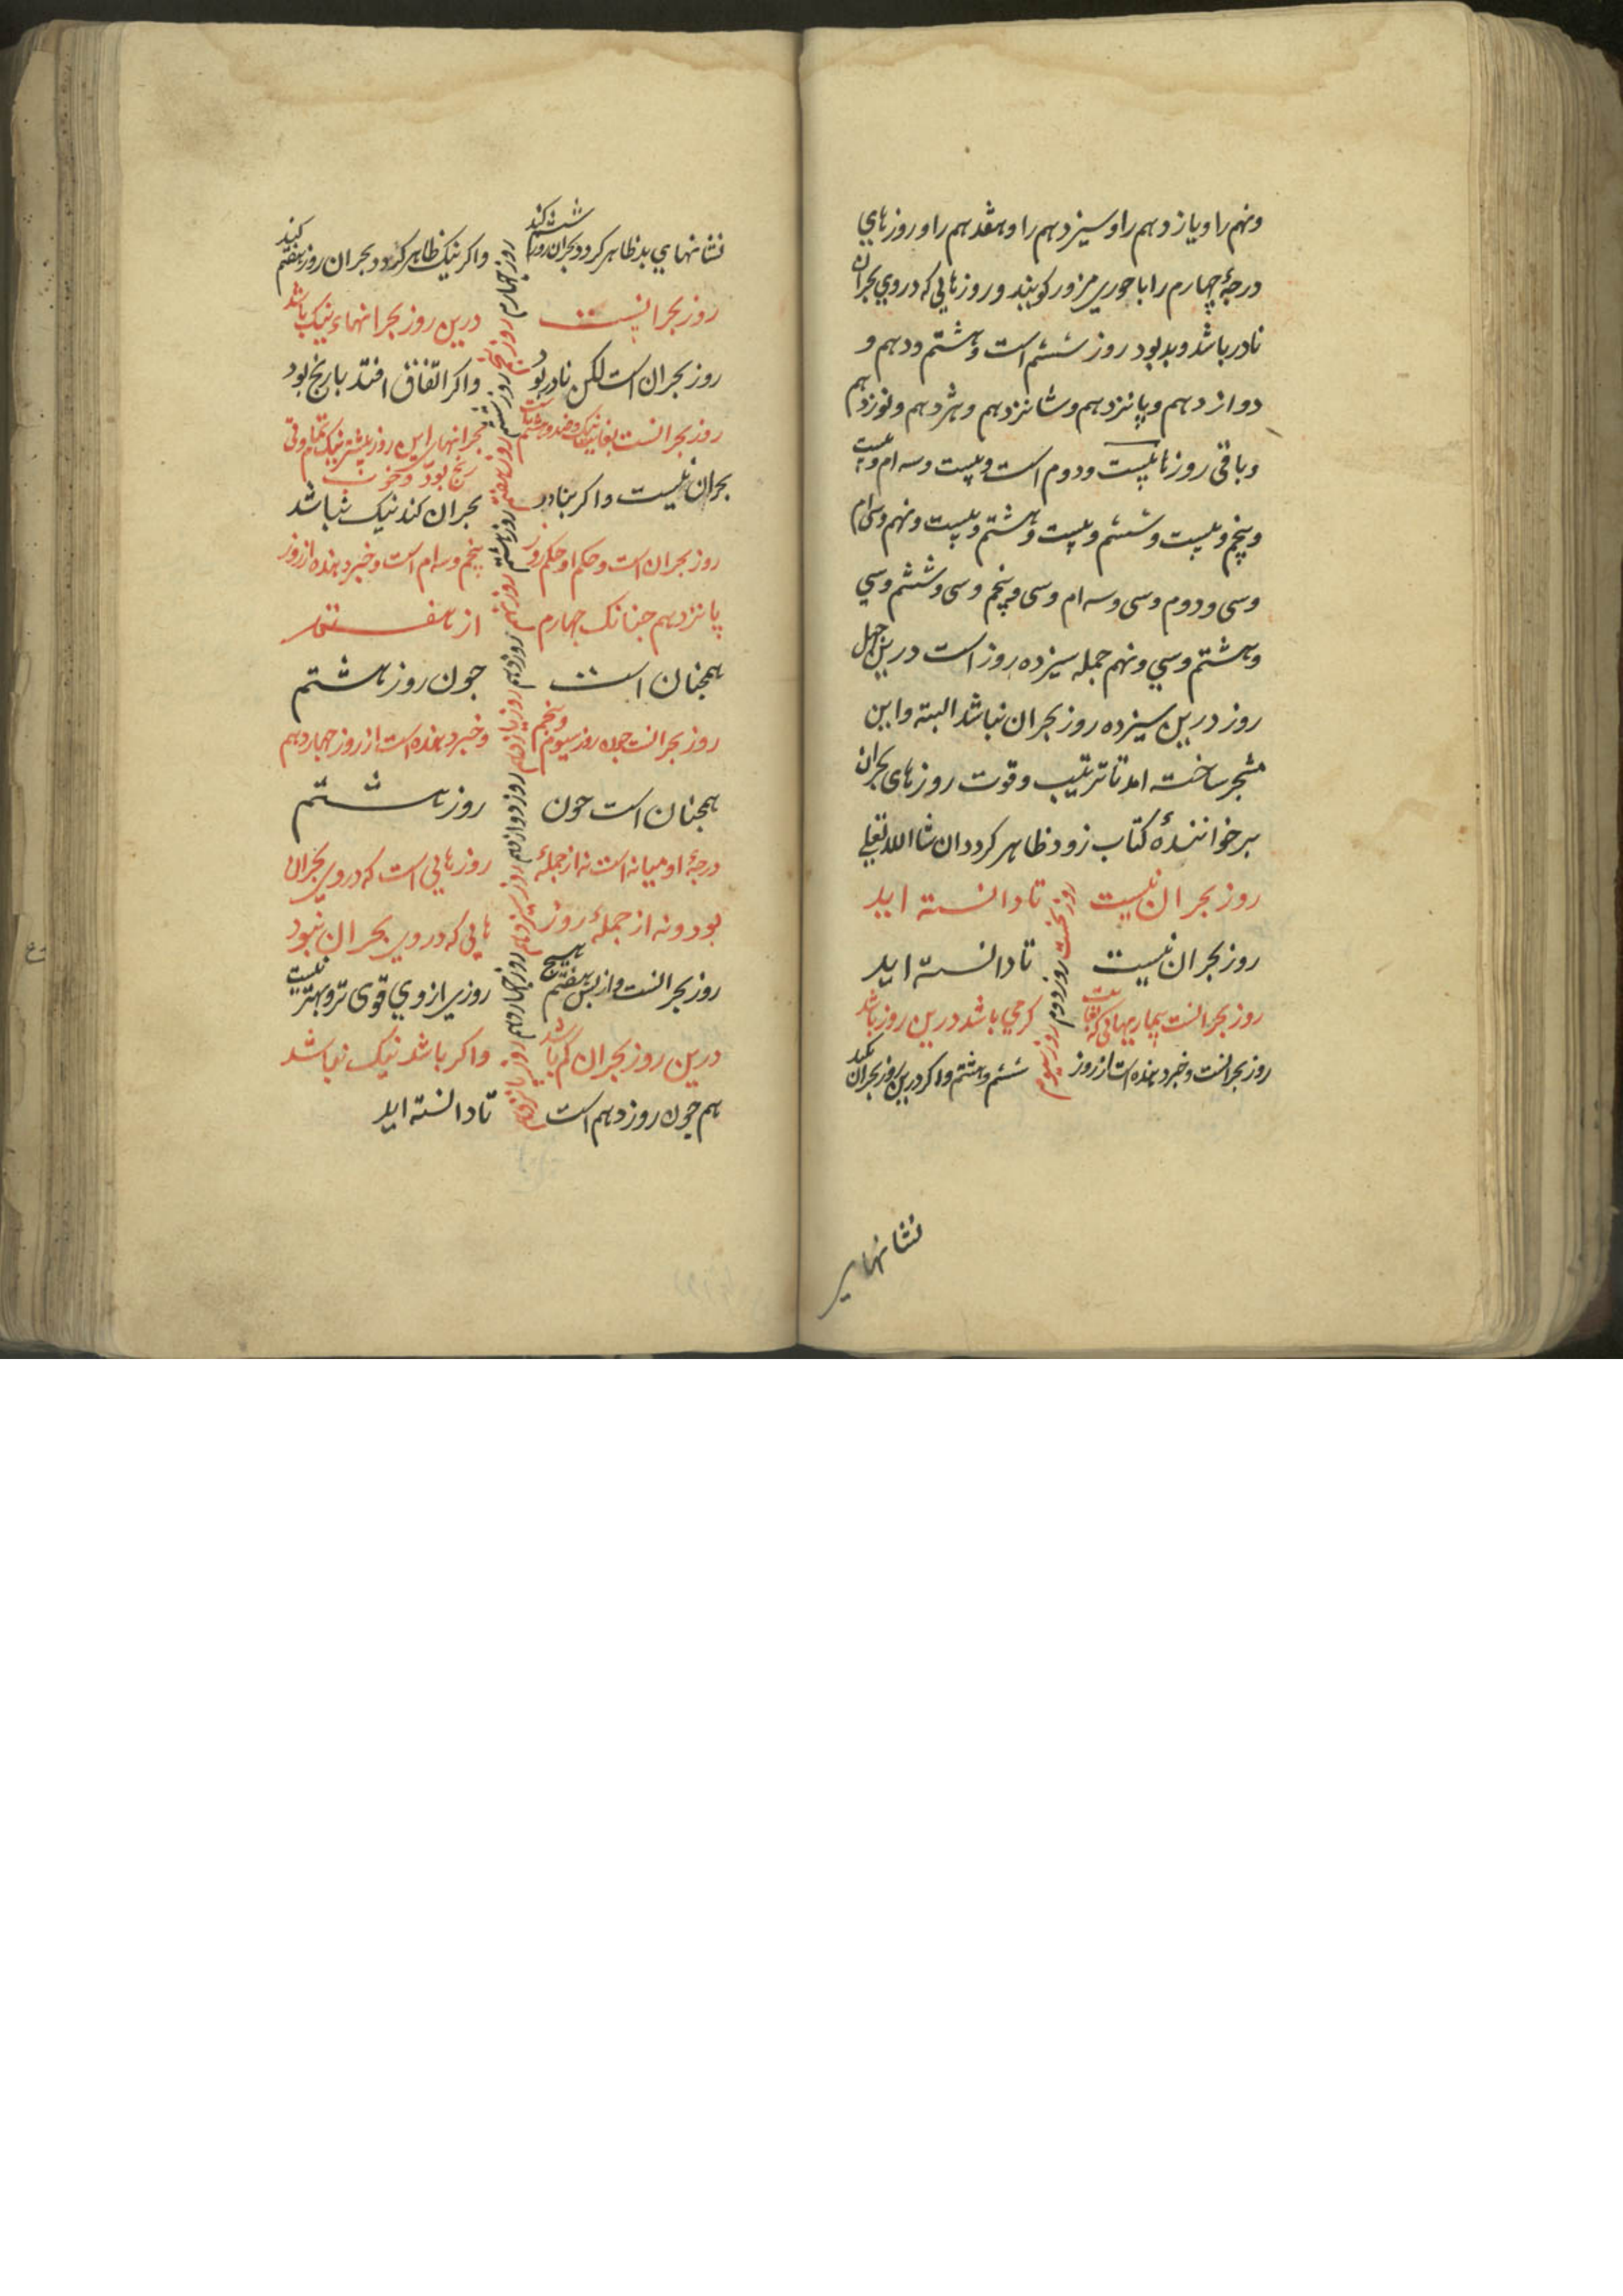 ونهم را ویازدهم را وسیزدهم را وهفدهم را وروزهای
درجهٔ چهارم را باحوری مزور کویند وروزهایی که دروی بحران
نادر باشد وبد بود روز ششم است وهشتم ودهم و
دوازدهم وپانزدهم وشانزدهم وهژدهم ونوزدهم
وباقی روزها بیست ودوم است وبیست وسه ام وبیست
وپنجم وبیست وششم وبیست وهشتم وبیست ونهم وسی ام
وسی ودوم وسی وسه ام وسی وپنجم وسی وششم وسی
وهشتم وسی ونهم جمله سیزده روز است درین چهل
روز درین سیزده روز بحران نباشد البته واین
مشجر ساخته امد تا ترتیب وقوت روزهای بحران
برخوانندهٔ کتاب زود ظاهر کردد ان شا الله تعلی
روز نخست
روز بحران نیست تا دانسته اید
روز دوم
روز بحران نیست تا دانسته اید
روز سیوم
روز بحرانست بیماریهائی که بغایت کرمی باشد درین روز باشد
روز بحرانست وخبر دهنده است از روز ششم وهفتم واکر درین روز بحران نکند
نشانهای
روز چهارم
نشانهای بد ظاهر کردد بحران روز ششم کند واکر نیک ظاهر کردد بحران روز هفتم کند
روز پنجم
روز بحرانیست درین روز بحرانهاء نیک باشد
روز ششم
روز بحران است لکن نادر بود واکر اتفاق افتد با رنج بود
روز هفتم
روز بحرانست بغایت نیک وضد روز ششم است بحرانهای این روز بیشتر نیک تمام وقی
رنج بود وخوی
روز هشتم
بحران نیست واکر بنادر بحران کند نیک نباشد
روز نهم
روز بحران است وحکم او حکم روز پنجم وسه ام است وخبر دهنده از روز
پانزدهم جنانک چهارم از هفتم
روز دهم
همچنان است جون روز هشتم
روز یازدهم
روز بحرانست جون روز سیوم وپنجم وخبر دهنده است از روز چهاردهم
روز دوازدهم
همچنان است جون روز هشتم
روز سیزدهم
درجهٔ او میانه است نه از جملهٔ روزهایی است که دروی بحران
بود ونه از جملهٔ روزهایی که دروی بحران نبود
روز چهاردهم
روز بحرانست واز پس هفتم هیچ روزی از وی قوی تر وبهتر نیست
روز پانزدهم
درین روز بحران کم باشد واکر باشد نیک نباشد
هم جون روز دهم است تا دانسته اید